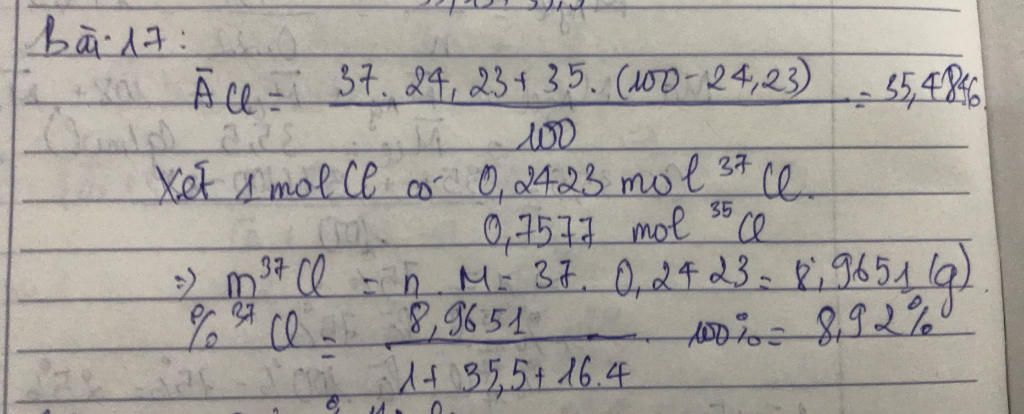 Bài 17:
Ā Cl = 37. 24,23 + 35. (100 - 24,23) = 35,4846
100
Xét 1 mol Cl có 0,2423 mol ³⁷Cl.
0,7577 mol ³⁵Cl
=> m ³⁷Cl = n. M = 37. 0,2423 = 8,9651 (g).
% ³⁷Cl = 8,9651 . 100% = 8,92%
1 + 35,5 + 16.4